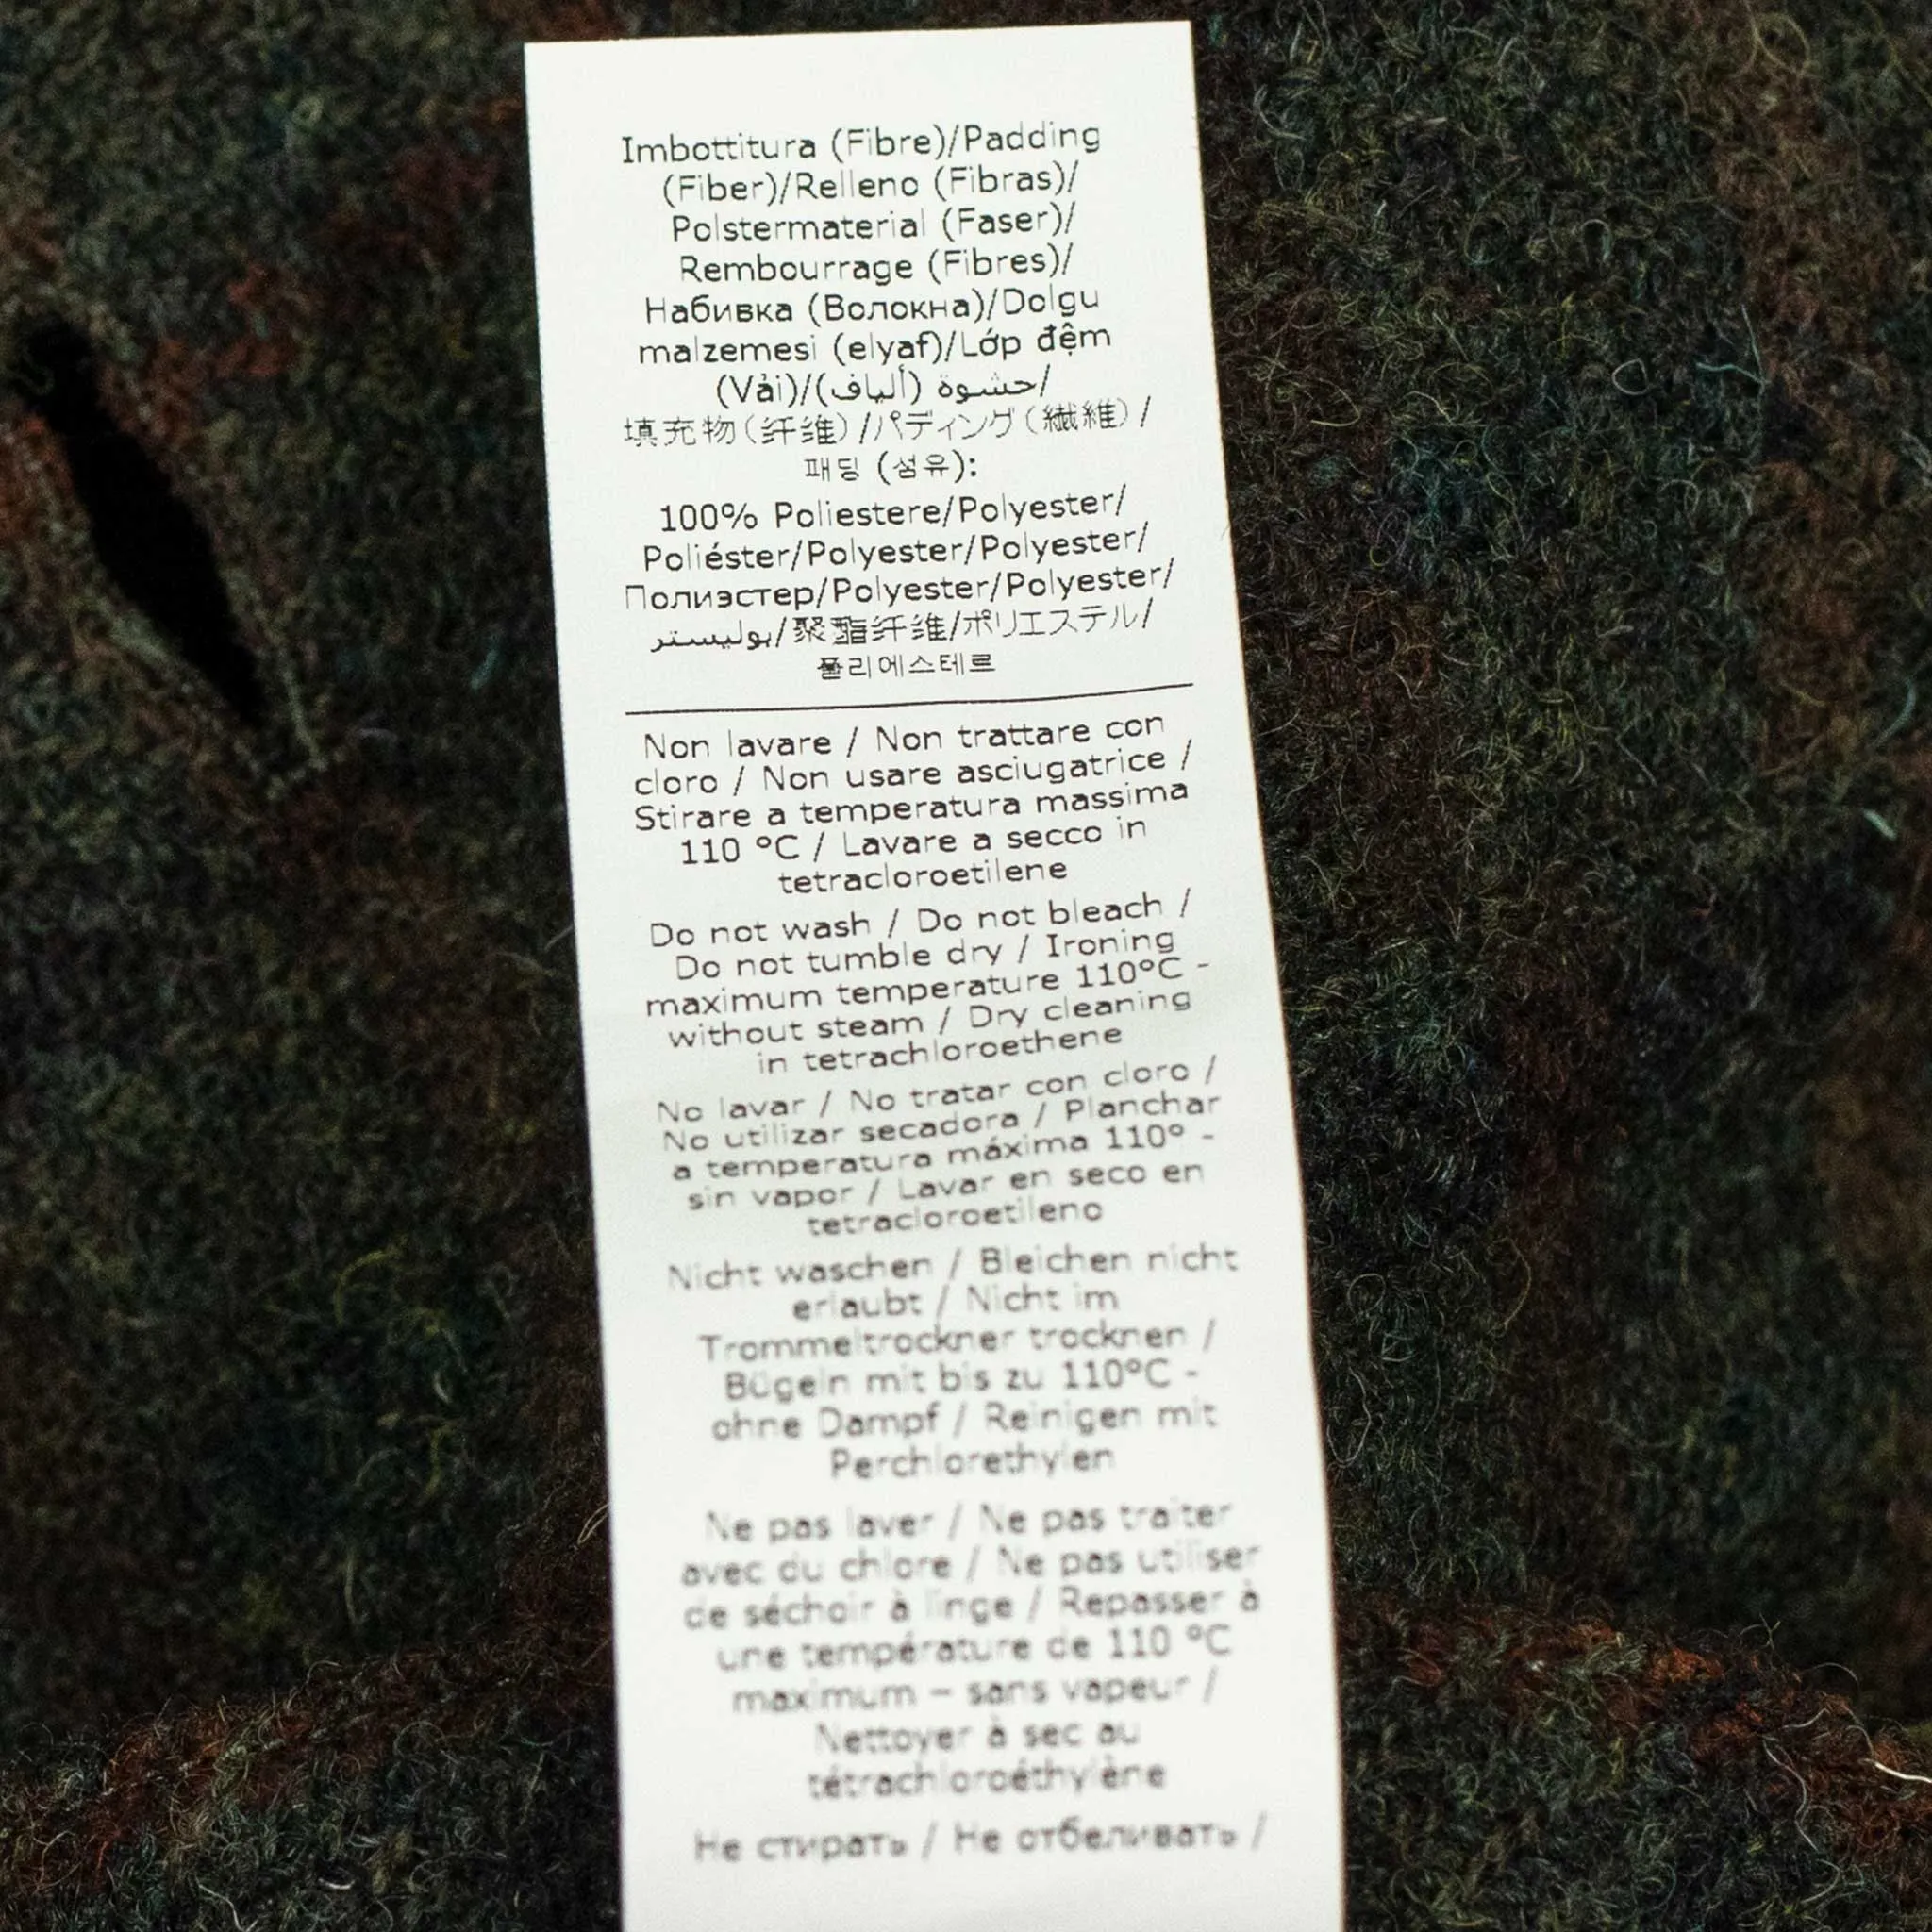 Imbottitura (Fibre)/Padding
(Fiber)/Relleno (Fibras)/
Polstermaterial (Faser)/
Rembourrage (Fibres)/
Набивка (Волокна)/Dolgu
malzemesi (elyaf)/Lớp đệm
(Vải)/حشوة (ألياف)/
填充物(纤维)/パディング(繊維)/
패딩 (섬유):
100% Poliestere/Polyester/
Poliéster/Polyester/Polyester/
Полиэстер/Polyester/Polyester/
بوليستر/聚酯纤维/ポリエステル/
폴리에스테르
Non lavare / Non trattare con
cloro / Non usare asciugatrice /
Stirare a temperatura massima
110 °C / Lavare a secco in
tetracloroetilene
Do not wash / Do not bleach /
Do not tumble dry / Ironing
maximum temperature 110°C -
without steam / Dry cleaning
in tetrachloroethene
No lavar / No tratar con cloro /
No utilizar secadora / Planchar
a temperatura máxima 110° -
sin vapor / Lavar en seco en
tetracloroetileno
Nicht waschen / Bleichen nicht
erlaubt / Nicht im
Trommeltrockner trocknen /
Bügeln mit bis zu 110°C -
ohne Dampf / Reinigen mit
Perchlorethylen
Ne pas laver / Ne pas traiter
avec du chlore / Ne pas utiliser
de séchoir à linge / Repasser à
une température de 110 °C
maximum – sans vapeur /
Nettoyer à sec au
tétrachloroéthylène
Не стирать / Не отбеливать /